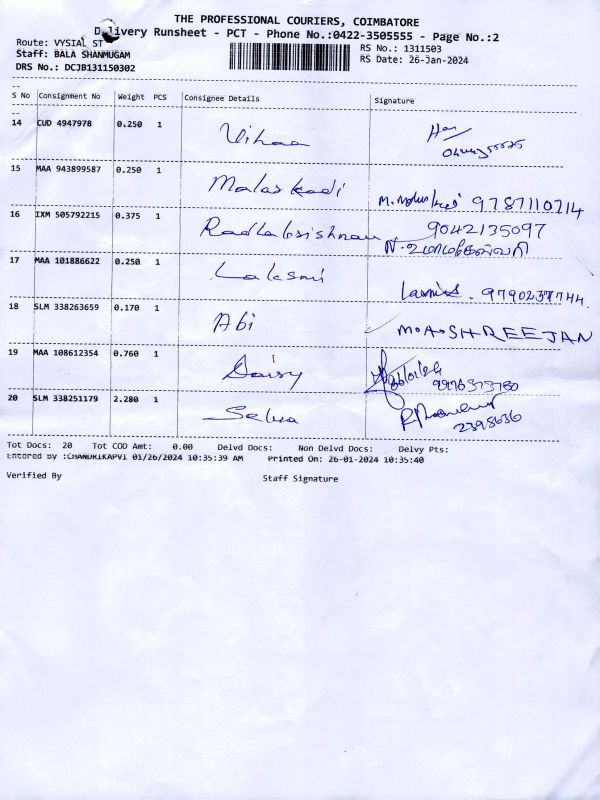 THE PROFESSIONAL COURIERS, COIMBATORE
Delivery Runsheet - PCT - Phone No.:0422-3505555 - Page No.:2
Route: VYSIAL ST
RS No.: 1311503
Staff: BALA SHANMUGAM
RS Date: 26-Jan-2024
DRS No.: DCJB131150302
S No Consignment No Weight PCS Consignee Details Signature
14 CUD 4947978 0.250 1 Vihaa
15 MAA 943899587 0.250 1 Malaskodi 9787110214
16 IXM 505792215 0.375 1 Radhakrishnan 9042135097
N. உமாமகேஸ்வரி
17 MAA 101886622 0.250 1 Laksmi 9790237744
18 SLM 338263659 0.170 1 Abi M.A.SHREEJAN
19 MAA 108612354 0.760 1 Daisy
20 SLM 338251179 2.280 1 Selva
2398636
Tot Docs: 20 Tot COD Amt: 0.00 Delvd Docs: Non Delvd Docs: Delvy Pts:
Entered By :CHANDRIKAPVI 01/26/2024 10:35:39 AM Printed On: 26-01-2024 10:35:40
Verified By Staff Signature